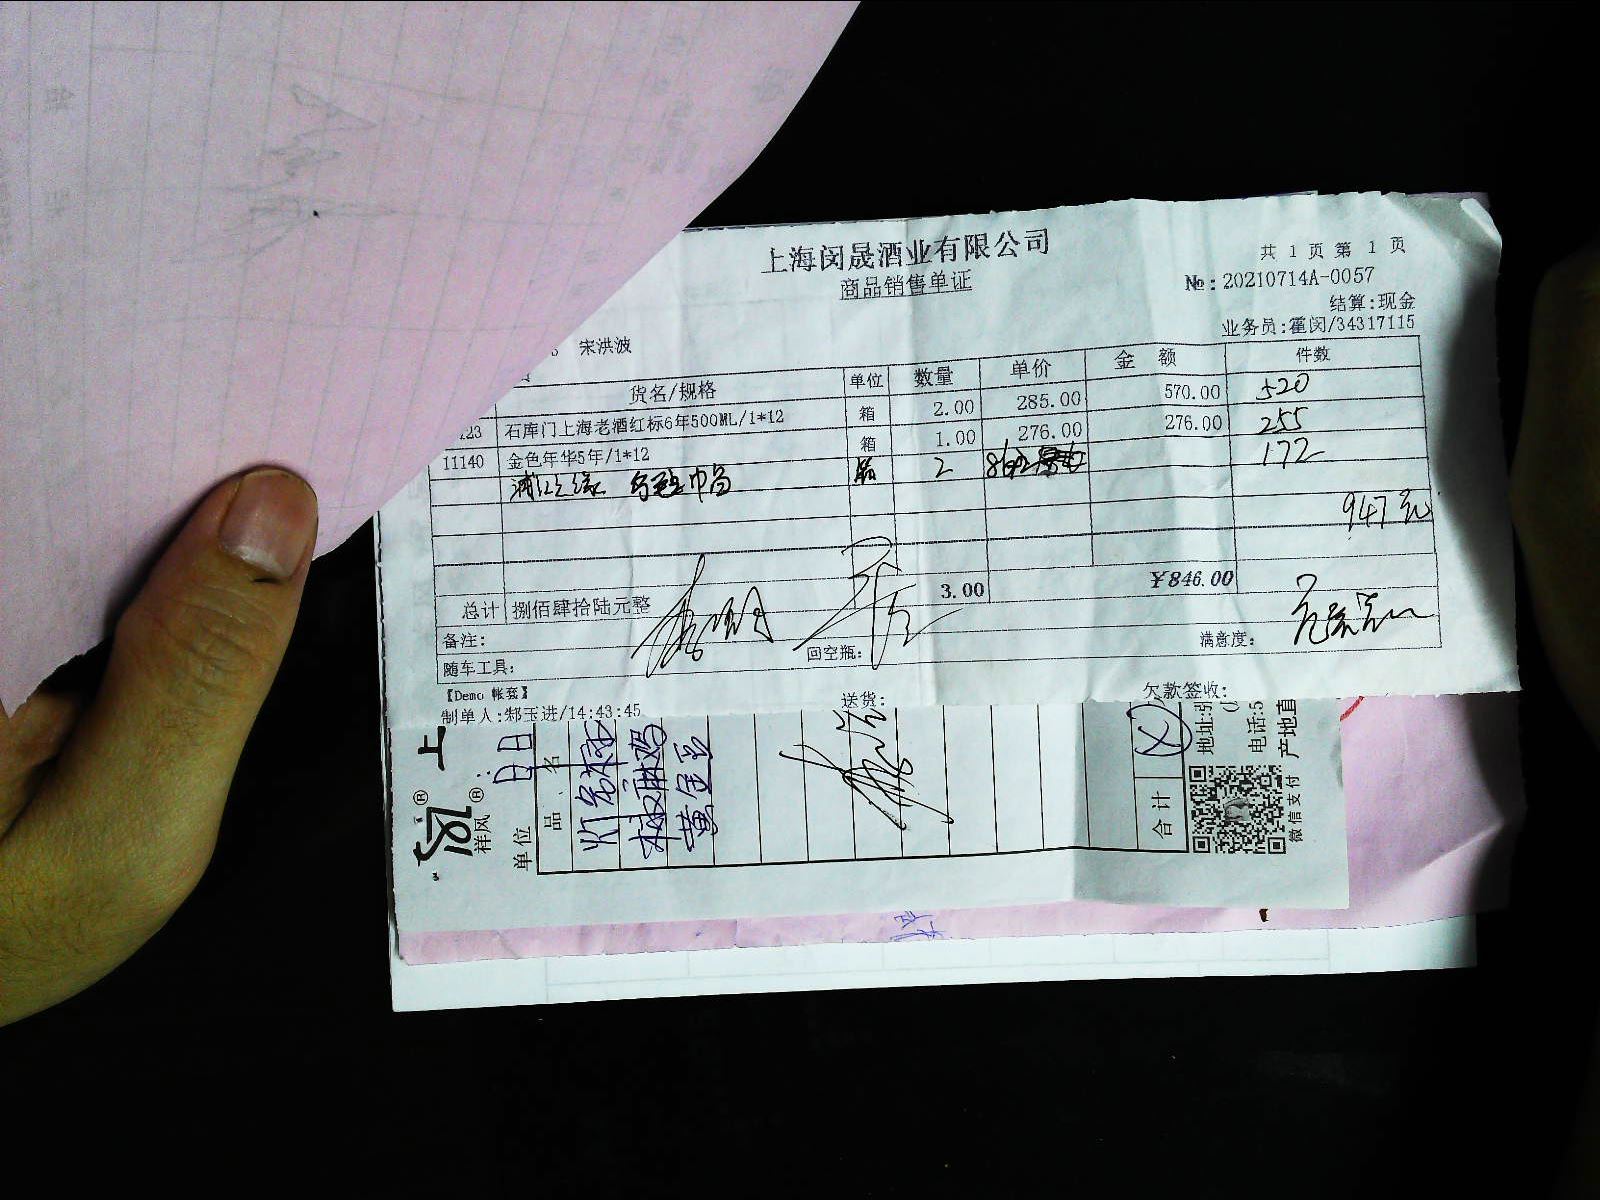 上海闵晟酒业有限公司
商品销售单证
共 1 页 第 1 页
№：20210714A-0057
结算:现金
业务员:霍闵/34317115
宋洪波
货名/规格 单位 数量 单价 金 额 件数
23 石库门上海老酒红标6年500ML/1*12 箱 2.00 285.00 570.00 520
11140 金色年华5年/1*12 箱 1.00 276.00 276.00 255
箱 2 172
947元
总计 捌佰肆拾陆元整 3.00 ¥846.00
备注:
随车工具: 回空瓶: 满意度:
【Demo 帐套】
制单人:郑玉进/14:43:45 送货: 欠款签收:
上
祥风
单位
品 名
黄金豆
合计
微信支付
地址:
电话:5
产地直